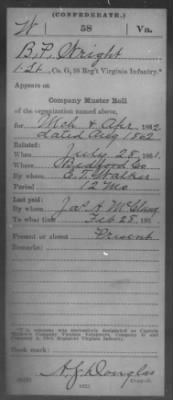 (CONFEDERATE.)
W 58 Va.
B. P. Wright
1 Lt, Co. G, 58 Reg't Virginia Infantry.*
Appears on
Company Muster Roll
of the organization named above,
for Mch & Apr, 1862
dated Aug 1862
Enlisted:
When July 28, 1861.
Where Bedford Co
By whom E. T. Walker
Period 12 Mo
Last paid:
By whom Jas. A. McClung
To what time Feb 28, 186
Present or absent Present
Remarks:
Book mark:
A. J. Douglas
Copyist.